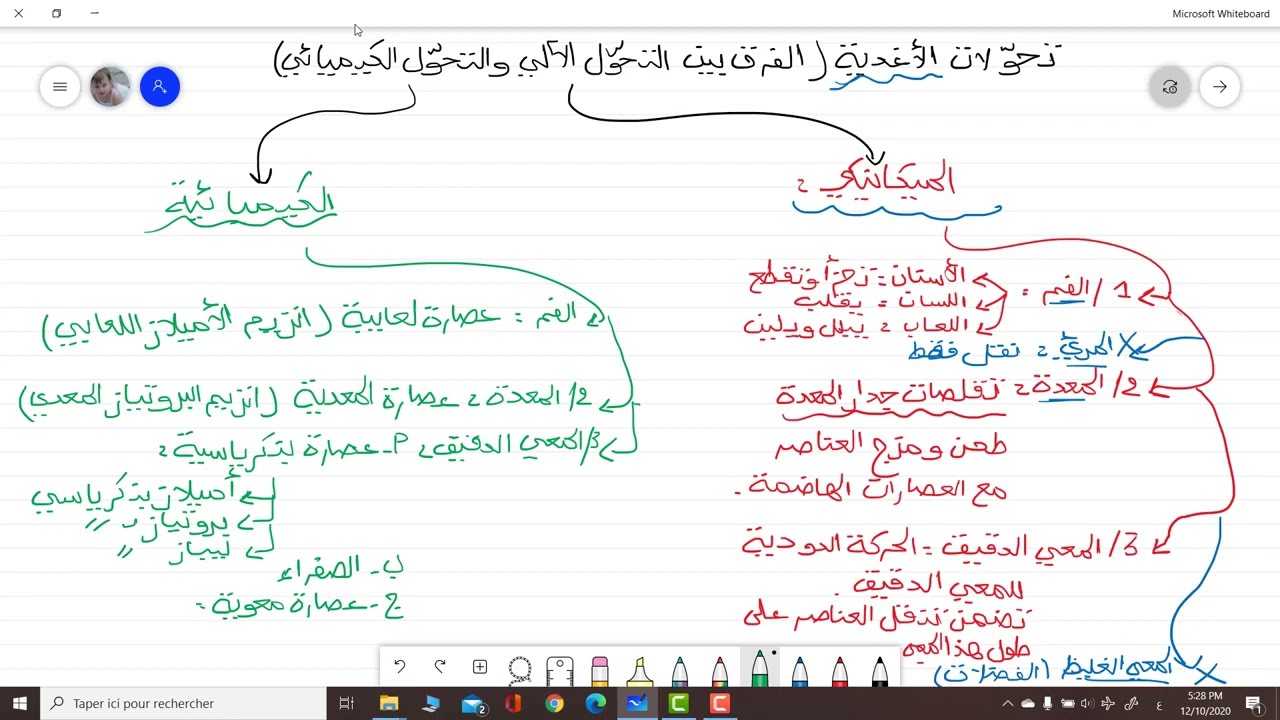 Microsoft Whiteboard
تحوّلات الأغذية (الفرق بين التحوّل الآلي والتحوّل الكيميائي)
الميكانيكي :
1/ الفم :
الأسنان = تجزأ وتقطع
اللسان = يقلب
اللعاب = يبلل ويلين
المريء = تنقل فقط
2/ المعدة = تقلصات جدار المعدة
طحن ومزج العناصر
مع العصارات الهاضمة .
3/ المعي الدقيق = الحركة الدودية
للمعي الدقيق .
تضمن تنقل العناصر على
طول هذا المعي
المعي الغليظ (الفضلات)
الكيميائية
الفم = عصارة لعابية (انزيم الأميلاز اللعابي)
2/ المعدة = عصارة المعدية (انزيم البروتياز المعدي)
3/ المعي الدقيق = P- عصارة بنكرياسية :
أميلاز بنكرياسي
بروتياز " "
ليباز "
ب- الصفراء
ج- عصارة معوية =
Taper ici pour rechercher
2
ع
5:28 PM
12/10/2020
1